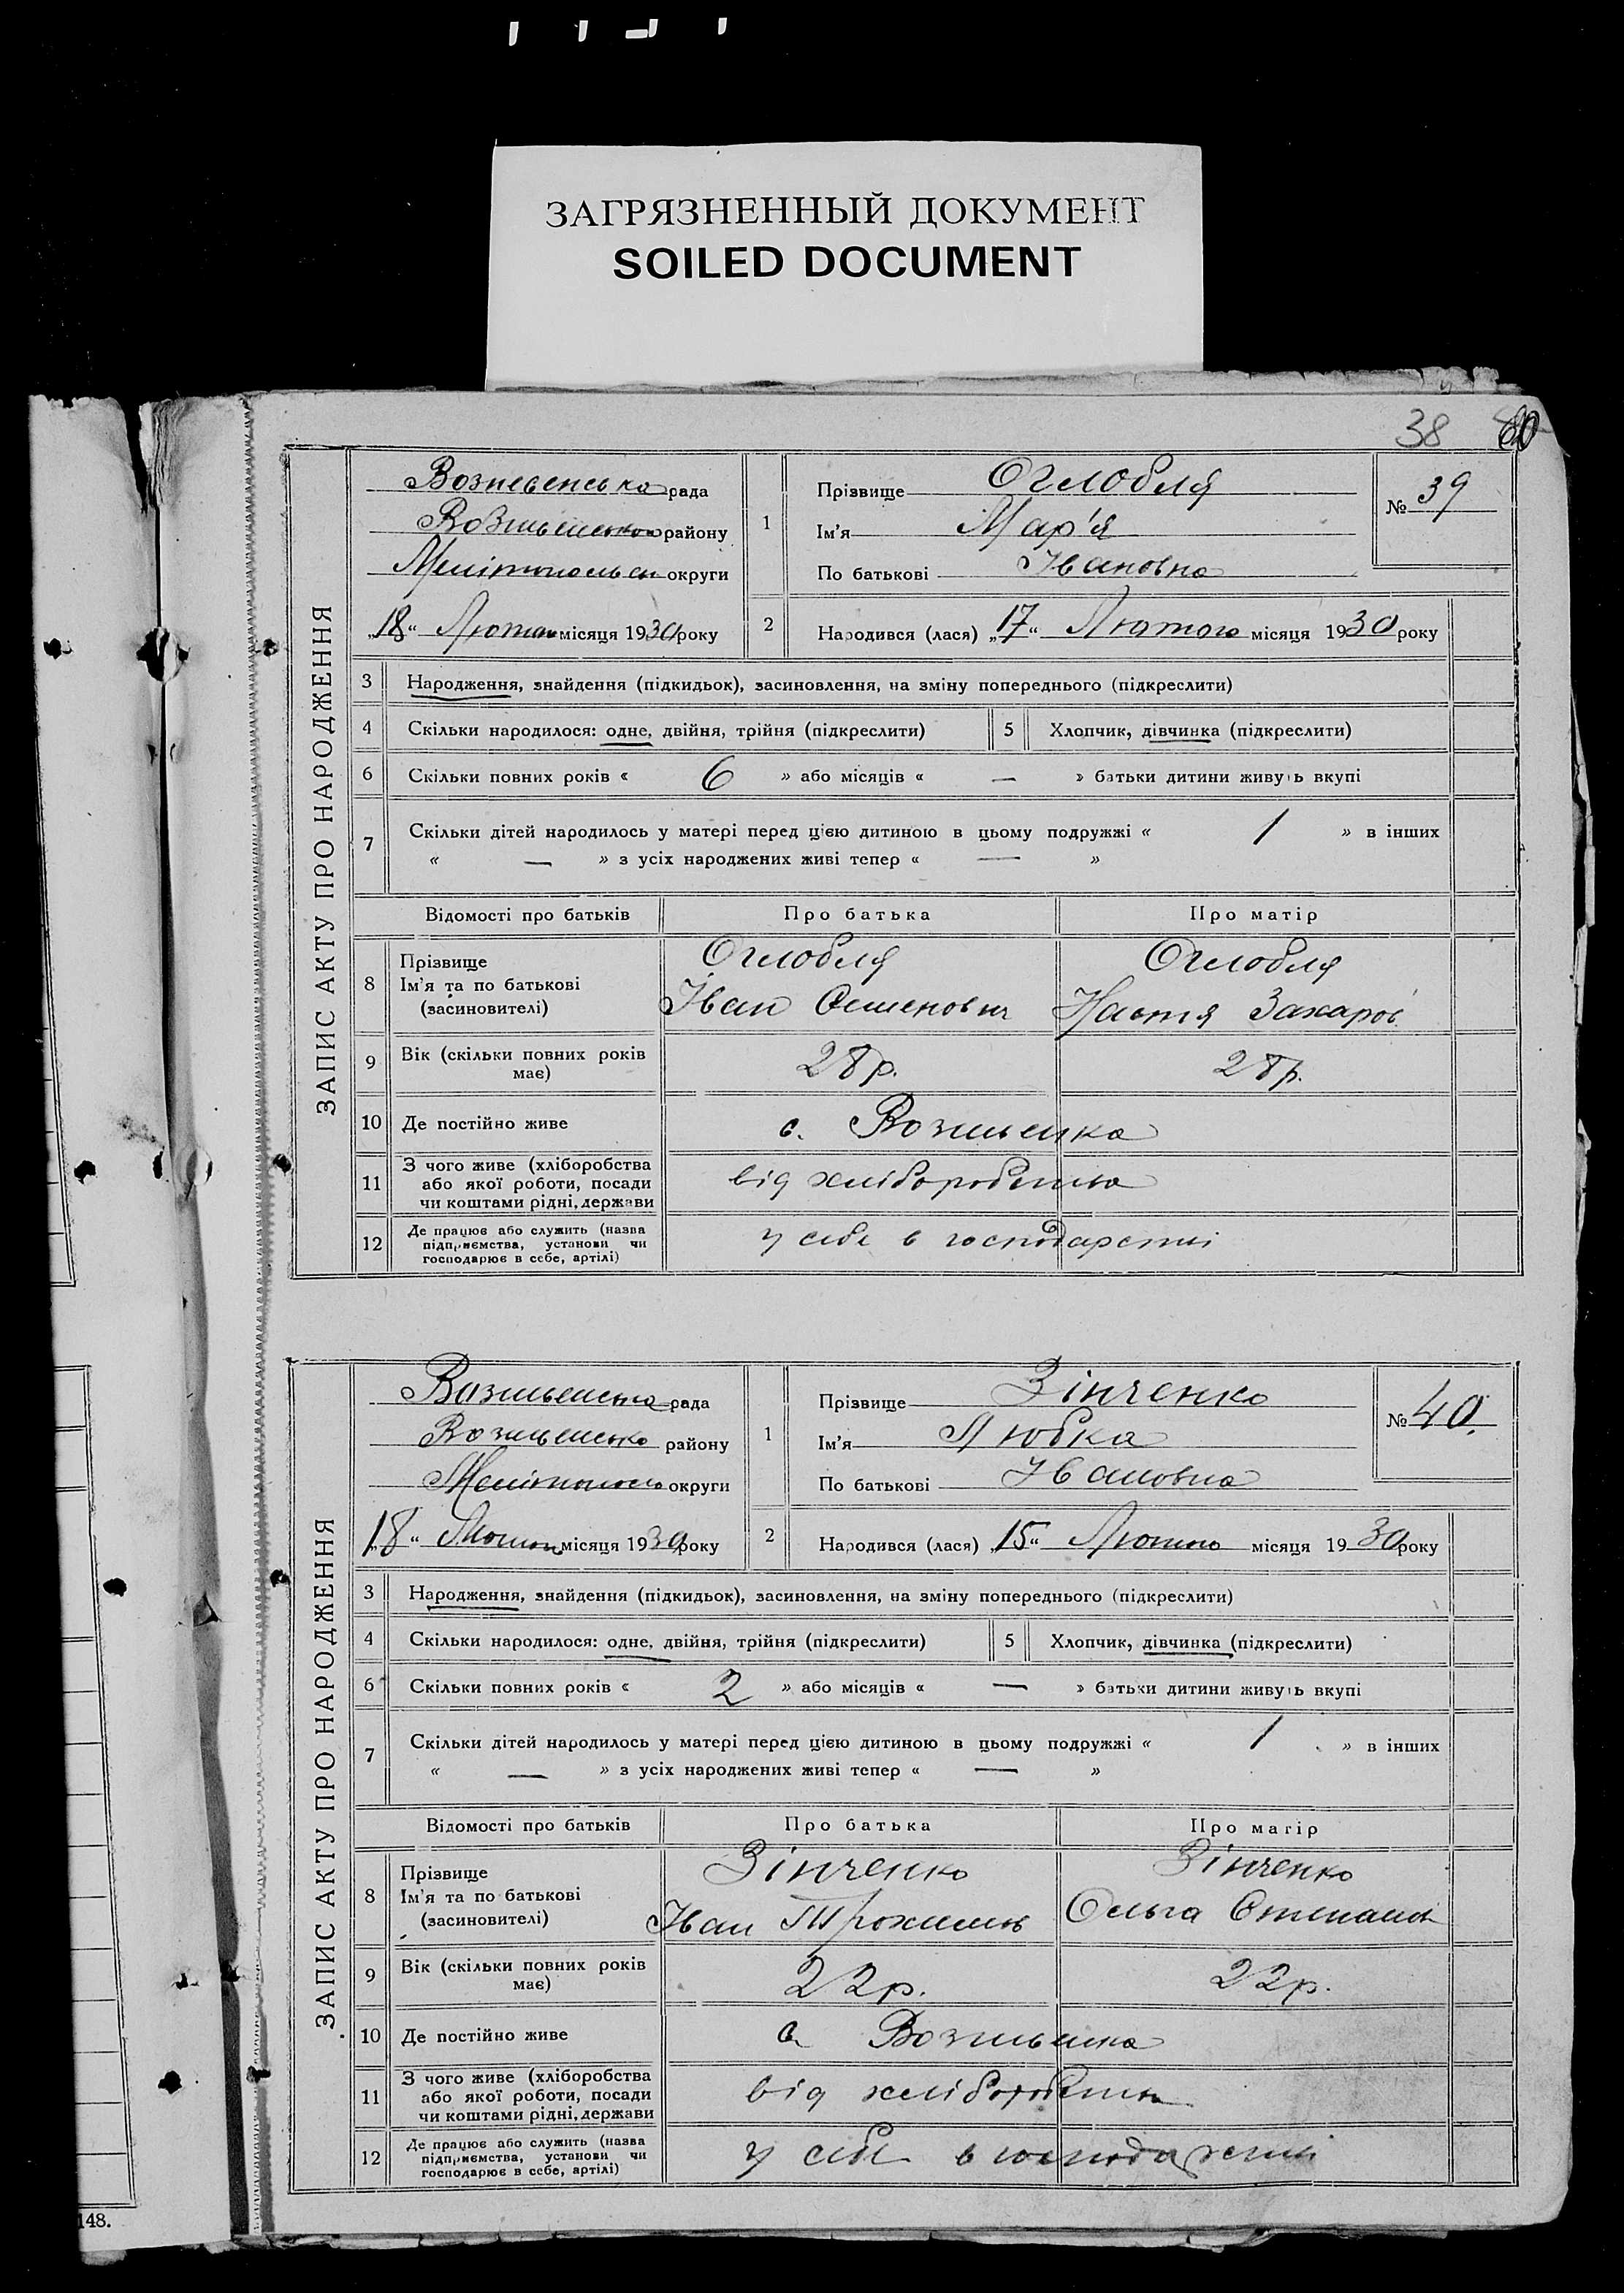 ЗАГРЯЗНЕННЫЙ ДОКУМЕНТ
SOILED DOCUMENT
38
ЗАПИС АКТУ ПРО НАРОДЖЕННЯ
Вознесенська рада
району
округи
„18“ Лютого місяця 1930 року
1
Прізвище Оглобля
Ім'я Мар'я
По батькові Івановна
№ 39
2
Народився (лася) „17“ Лютого місяця 1930 року
3 Народження, знайдення (підкидьок), засиновлення, на зміну попереднього (підкреслити)
4 Скільки народилося: одне, двійня, трійня (підкреслити)
5 Хлопчик, дівчинка (підкреслити)
6 Скільки повних років « 6 » або місяців « — » батьки дитини живуть вкупі
7 Скільки дітей народилось у матері перед цією дитиною в цьому подружжі « 1 » в інших
« — » з усіх народжених живі тепер « — »
Відомості про батьків Про батька Про матір
8 Прізвище Оглобля Оглобля
Ім'я та по батькові Іван Семенович Настя Захаров
(засиновителі)
9 Вік (скільки повних років має) 28 р. 28 р.
10 Де постійно живе с. Вознесенка
11 З чого живе (хліборобства
або якої роботи, посади
чи коштами рідні, держави
від хліборобства
12 Де працює або служить (назва
підприємства, установи чи
господарює в себе, артілі)
у себе в господарстві
ЗАПИС АКТУ ПРО НАРОДЖЕННЯ
Вознесенська рада
району
округи
„18“ Лютого місяця 1930 року
1
Прізвище Зінченко
Ім'я Любка
По батькові Івановна
№ 40.
2
Народився (лася) „15“ Лютого місяця 1930 року
3 Народження, знайдення (підкидьок), засиновлення, на зміну попереднього (підкреслити)
4 Скільки народилося: одне, двійня, трійня (підкреслити)
5 Хлопчик, дівчинка (підкреслити)
6 Скільки повних років « 2 » або місяців « — » батьки дитини живуть вкупі
7 Скільки дітей народилось у матері перед цією дитиною в цьому подружжі « 1 » в інших
« — » з усіх народжених живі тепер « — »
Відомості про батьків Про батька Про матір
8 Прізвище Зінченко Зінченко
Ім'я та по батькові Іван Ольга
(засиновителі)
9 Вік (скільки повних років має) 22 р. 22 р.
10 Де постійно живе с. Вознесенка
11 З чого живе (хліборобства
або якої роботи, посади
чи коштами рідні, держави
від хліборобства
12 Де працює або служить (назва
підприємства, установи чи
господарює в себе, артілі)
у себе в господарстві
148.